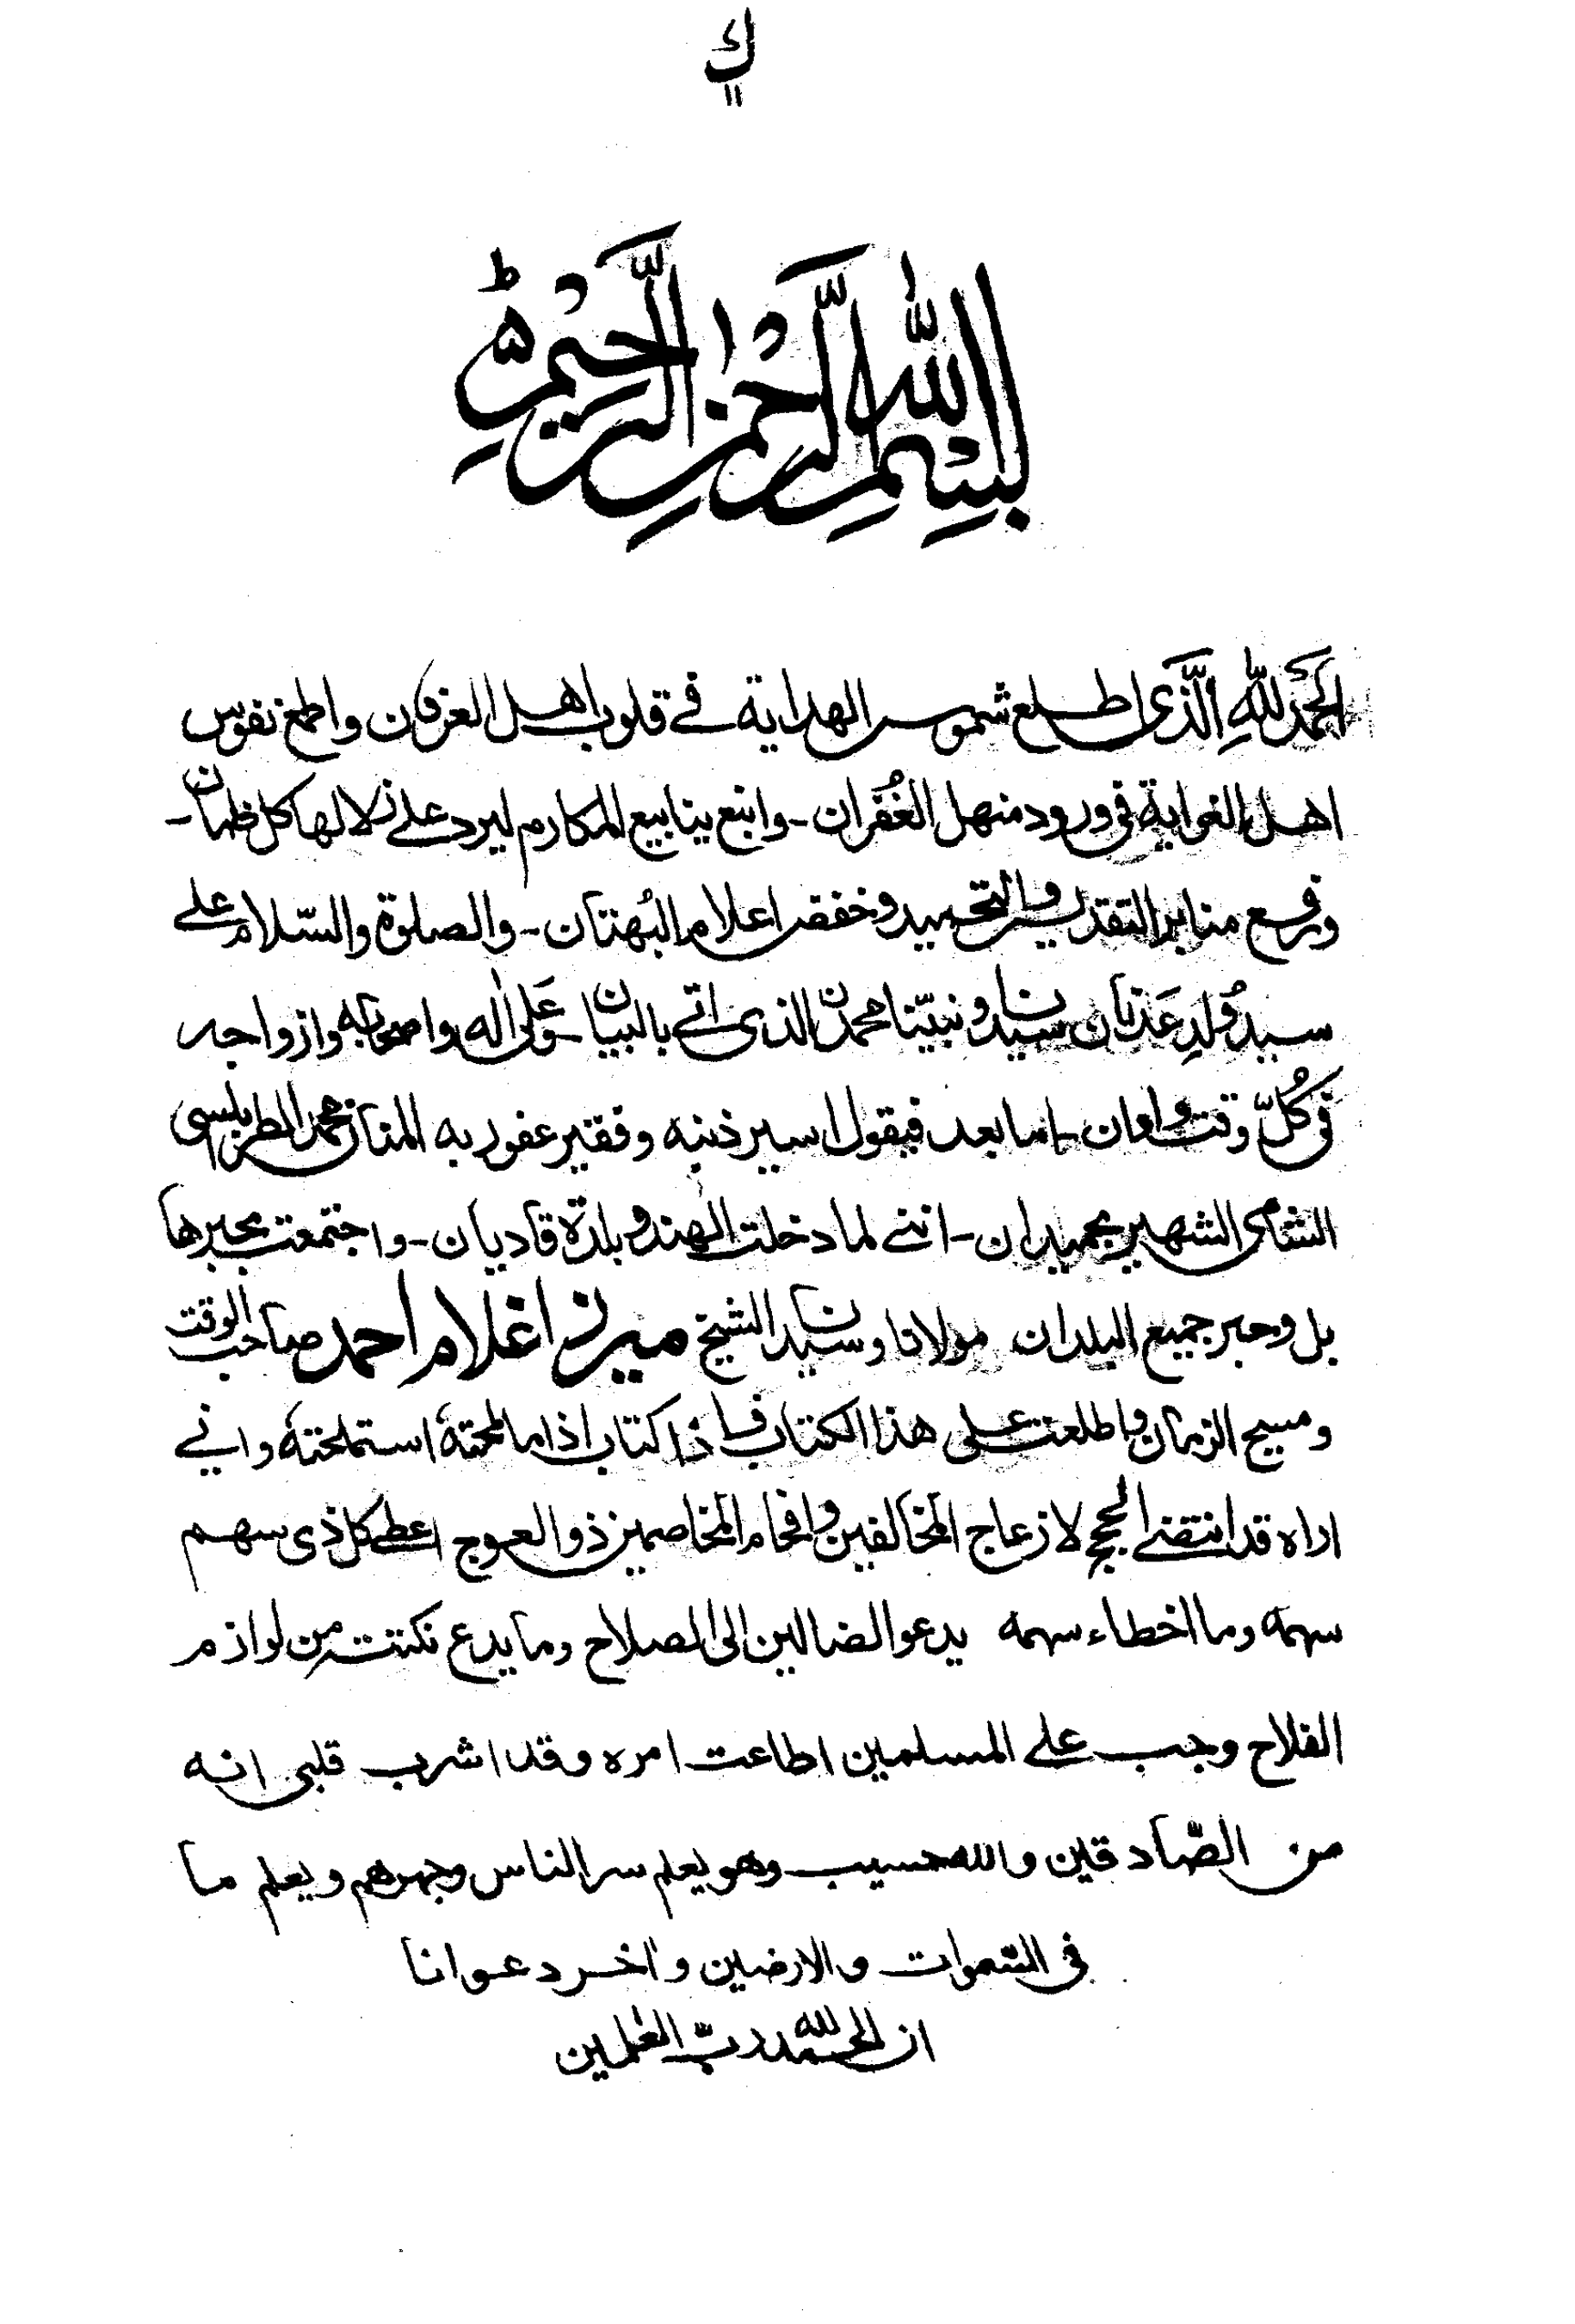 ك
بسم الله الرحمن الرحيم
الحمد لله الَّذى اطلع شموس الهداية فے قلوب اهل العرفان واطمع نفوس
اهل الغواية فى ورود منهل الغُفران - وانبع ينابيع المكارم ليرد علے زلالها كل ظمان -
ورفع منابر التقديس والتحميد وخفض اعلام البُهتان - والصلوة والسّلام علے
سيد وُلدِ عَدنان سيدنا ونبيّنا محمدن الذى اتے بالبيان - وعَلىٰ اله واصحابه وازواجه
فى كُلّ وقت واوان - اما بعد فيقول اسير ذنبه وفقير عفو ربه المنان محمد الطرابلسى
الشامى الشهير بحميدان - اننے لما دخلت الهند وبلدة قاديان - واجتمعت بحبرها
بل وحبر جميع البلدان مولانا وسيدنا الشيخ ميرزا غلام احمد صاحب الوقت
ومسيح الزمان واطلعت على هذا الكتاب فاذا كتاب اذا ما لمحتهٗ استملحتهٗ وانے
اراه قد انتضى الحجج لازعاج المخالفين وافحام المخاصمين ذو العوج اعطى كل ذى سهم
سهمه وما اخطاء سهمه يدعو الضالين الى الصلاح وما يدع نكتت من لوازم
الفلاح وجب علے المسلمين اطاعت امره وقد اشرب قلبى انه
من الصّادقين والله حسيب وهو يعلم سر الناس وجهرهم ويعلم ما
فى السّموات والارضين واٰخر دعوانا
ان الحمد لله ربّ العٰلمين